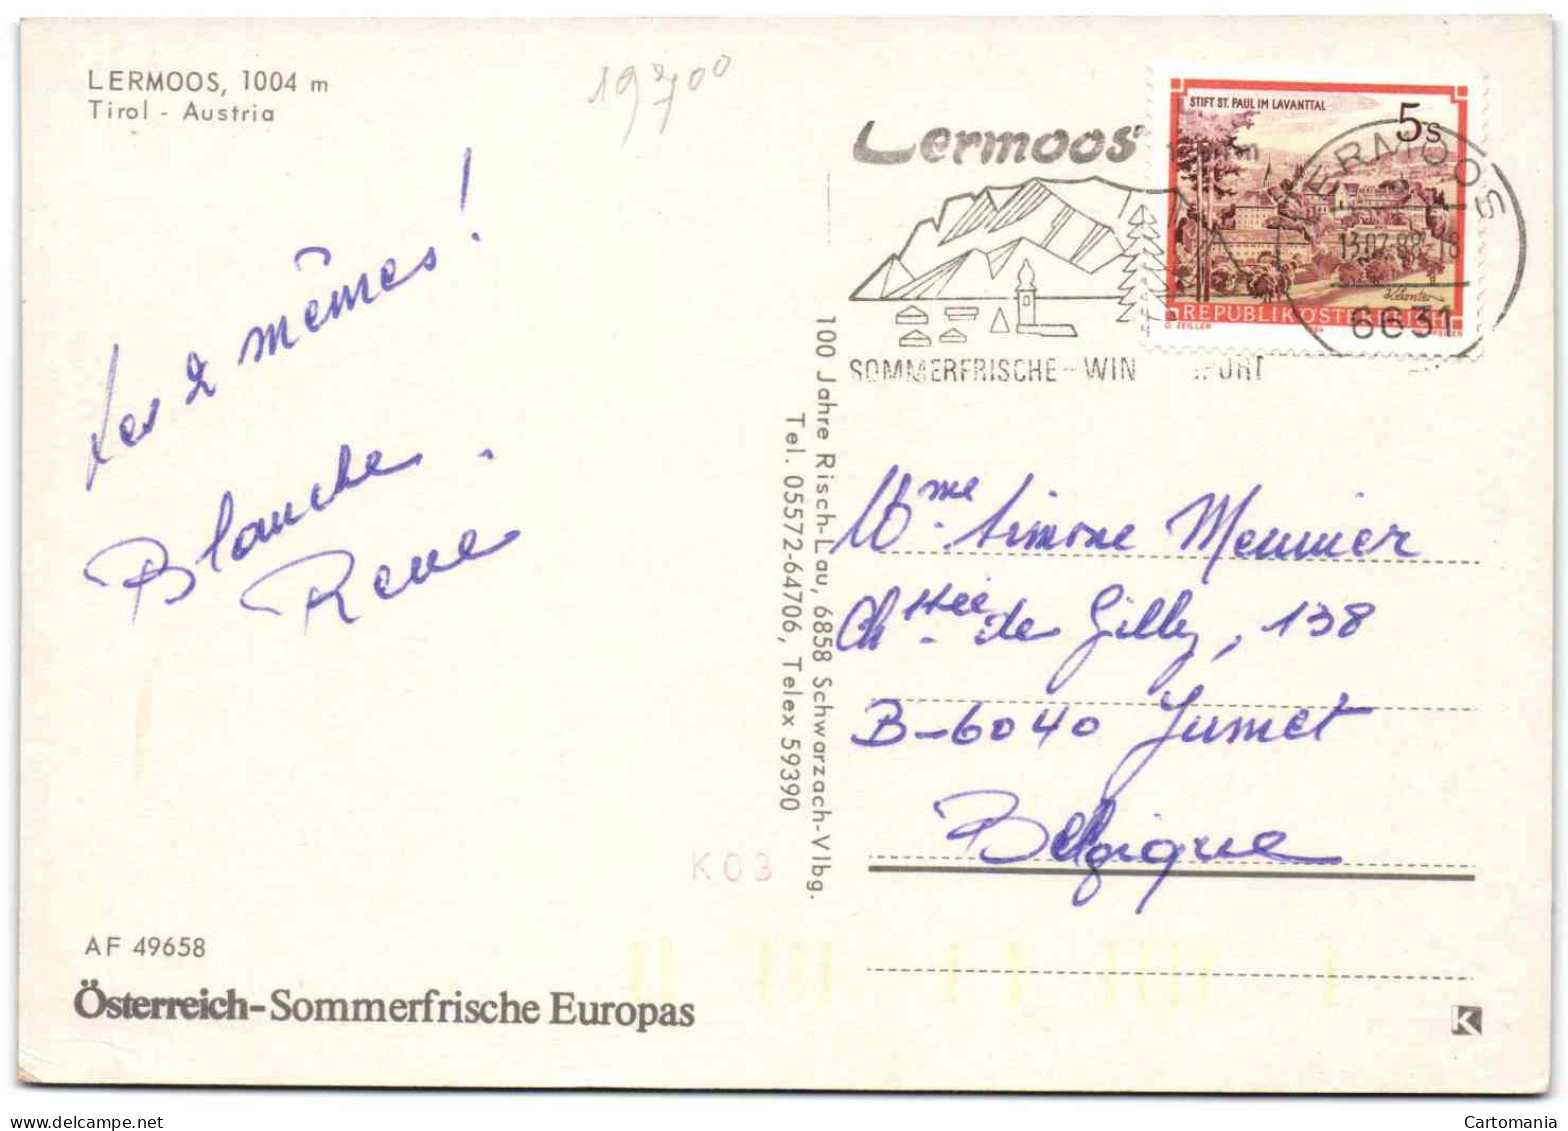 LERMOOS, 1004 m
Tirol - Austria
Les 2 mêmes !
Blanche.
René
AF 49658
Österreich-Sommerfrische Europas
K03
100 Jahre Risch-Lau, 6858 Schwarzach-Vlbg.
Tel. 05572-64706, Telex 59390
Lermoos
Tirol
SOMMERFRISCHE - WIN PORT
STIFT ST. PAUL IM LAVANTTAL
5 S
REPUBLIK ÖSTERREICH
O. ZEILLER
LERMOOS
13.07.88-18
6631
Mme Simone Meunier
Chssée de Gilly, 138
B-6040 Jumet
Belgique
K
Cartomania